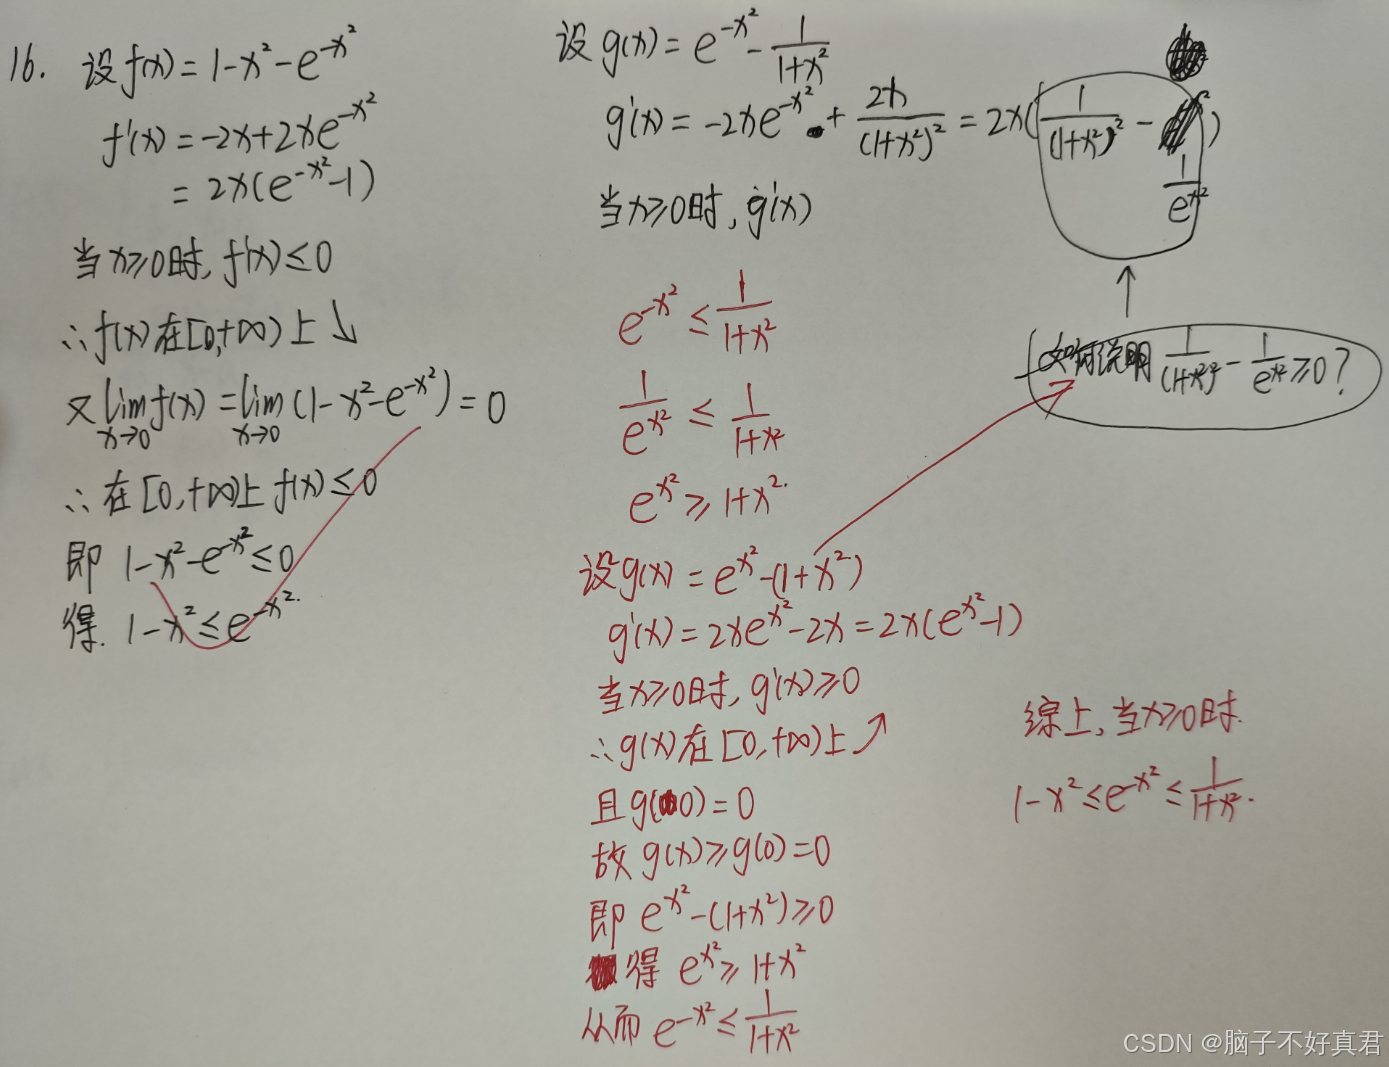 16. 设 f(x) = 1-x²-e^{-x²}
f'(x) = -2x+2xe^{-x²}
= 2x(e^{-x²}-1)
当 x≥0时, f'(x)≤0
∴ f(x)在[0,+∞)上↘
又 lim_{x→0} f(x) = lim_{x→0} (1-x²-e^{-x²}) = 0
∴ 在[0,+∞)上 f(x)≤0
即 1-x²-e^{-x²}≤0
得. 1-x²≤e^{-x²}.
设 g(x) = e^{-x²} - \frac{1}{1+x²}
g'(x) = -2xe^{-x²} + \frac{2x}{(1+x²)²} = 2x(\frac{1}{(1+x²)²} - \frac{1}{e^{x²}})
当x≥0时, g'(x)
如何说明 \frac{1}{(1+x²)²} - \frac{1}{e^{x²}} ≥0?
e^{-x²} ≤ \frac{1}{1+x²}
\frac{1}{e^{x²}} ≤ \frac{1}{1+x²}
e^{x²} ≥ 1+x².
设 g(x) = e^{x²}-(1+x²)
g'(x) = 2xe^{x²}-2x = 2x(e^{x²}-1)
当x≥0时, g'(x)≥0
∴ g(x)在[0,+∞)上↗
且 g(0) = 0
故 g(x)≥g(0)=0
即 e^{x²}-(1+x²)≥0
得 e^{x²}≥1+x²
从而 e^{-x²} ≤ \frac{1}{1+x²}
综上, 当x≥0时.
1-x² ≤ e^{-x²} ≤ \frac{1}{1+x²}.
CSDN @脑子不好真君